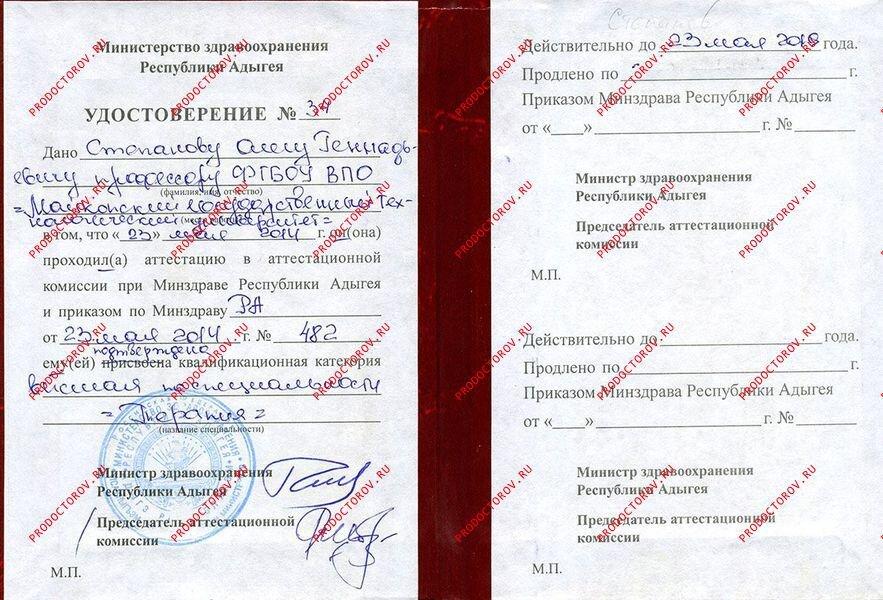 Министерство здравоохранения
Республики Адыгея
УДОСТОВЕРЕНИЕ №
Дано Степанову Олегу Геннадь-
евичу профессору ФГБОУ ВПО
(фамилия, имя, отчество)
"Майкопский государственный Тех-
нологический университет"
в том, что «23» мая 2014 г. он(она)
проходил(а) аттестацию в аттестационной
комиссии при Минздраве Республики Адыгея
и приказом по Минздраву РА
от 23 мая 2014 г. № 482
подтверждена
ему(ей) присвоена квалификационная категория
высшая по специальности
"Терапия"
(название специальности)
Министр здравоохранения
Республики Адыгея
Председатель аттестационной
комиссии
М.П.
Действительно до 23 мая года.
Продлено по г.
Приказом Минздрава Республики Адыгея
от «____» г. №
Министр здравоохранения
Республики Адыгея
Председатель аттестационной
комиссии
М.П.
Действительно до года.
Продлено по г.
Приказом Минздрава Республики Адыгея
от «____» г. №
Министр здравоохранения
Республики Адыгея
Председатель аттестационной
комиссии
М.П.
PRODOCTOROV.RU